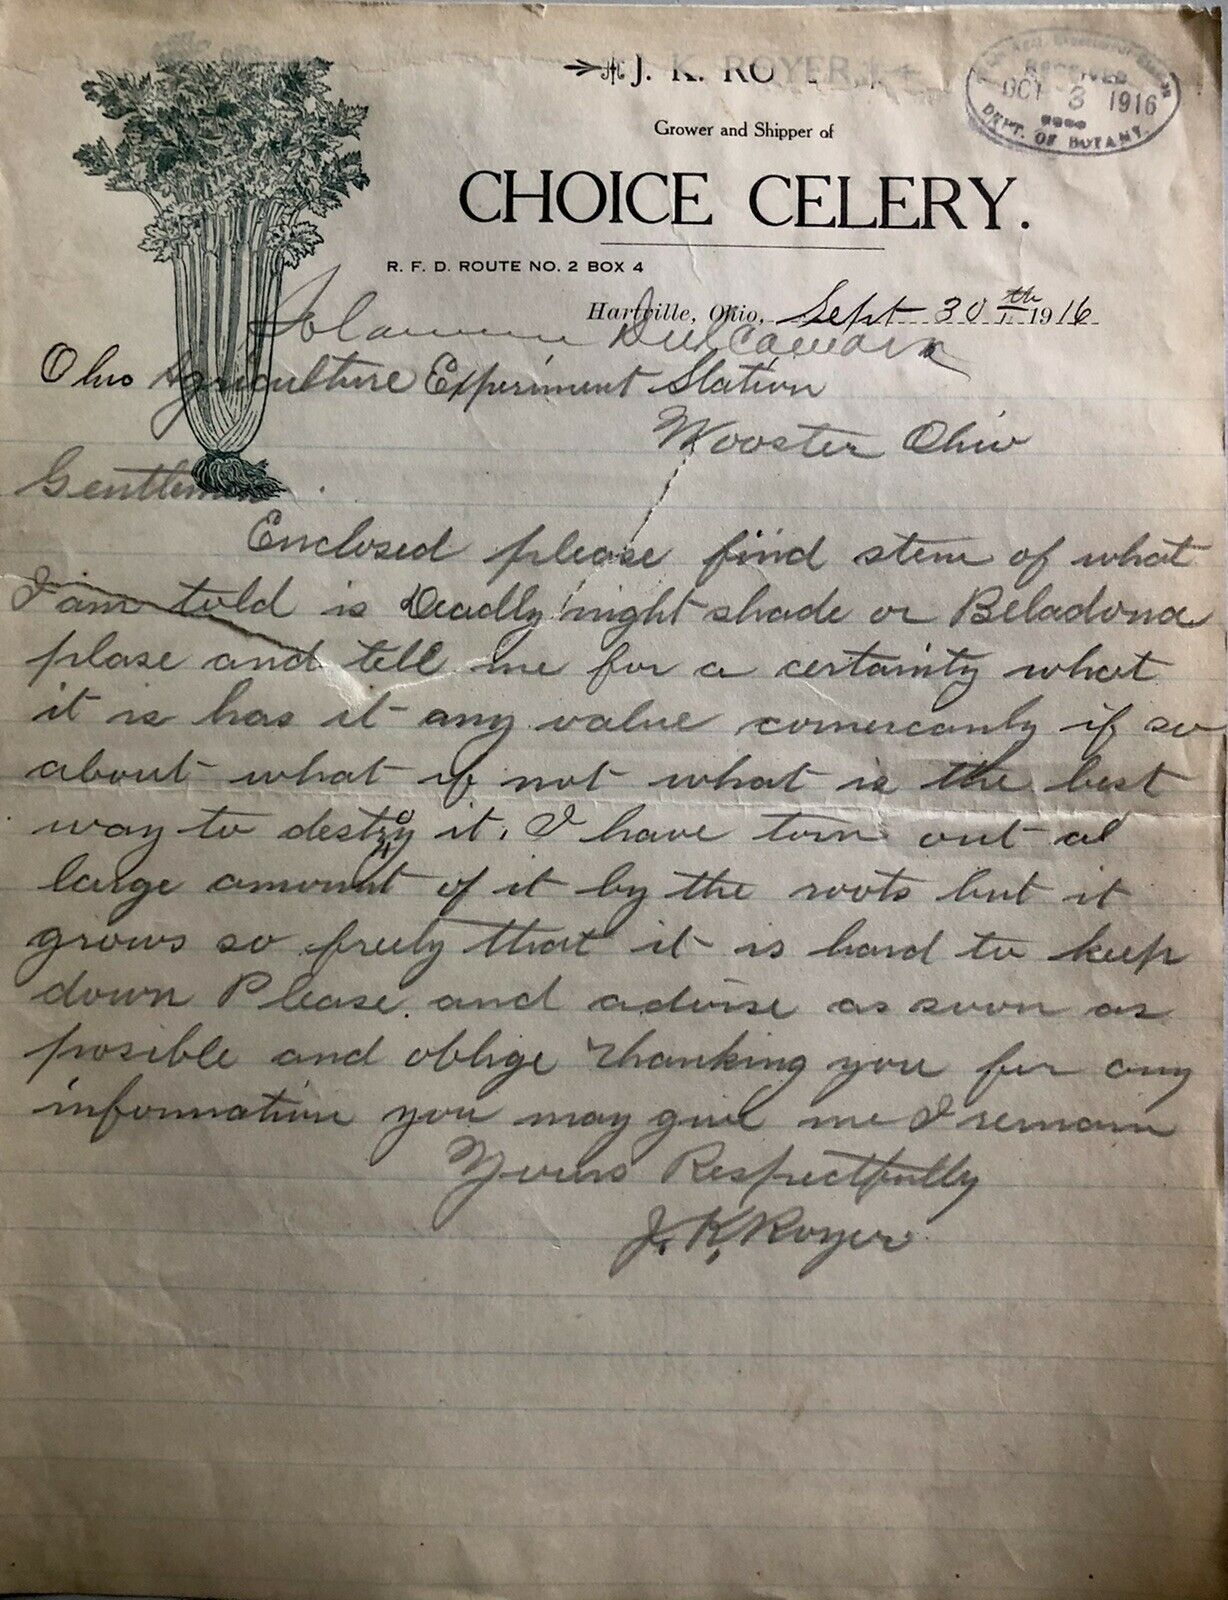 J. K. ROYER,
RECEIVED
OCT 3 1916
DEPT. OF BOTANY.
Grower and Shipper of
CHOICE CELERY.
R. F. D. ROUTE NO. 2 BOX 4
Hartville, Ohio, Sept 30th 1916
Solanum Dulcamara
Ohio Agriculture Experiment Station
Wooster Ohio
Gentlemen
Enclosed please find stem of what
I am told is Deadly night shade or Beladona
plase and tell me for a certainty what
it is has it any value comercanly if so
about what if not what is the best
way to destroy it. I have torn out a
large amount of it by the roots but it
grows so freely that it is hard to keep
down Please and advise as soon as
posible and oblige Thanking you for any
information you may give me I remain
Yours Respectfully
J. K. Royer